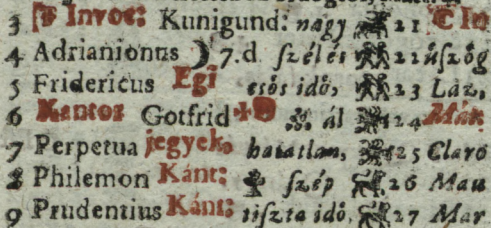 3 Invoc: Kunigund: nagy 21
4 Adrianionus 7.d szélés 22 üszög
5 Fridericus Egi esős idő, 23 Laz,
6 Kantor Gotfrid ál 24 Mát
7 Perpetua jegyek. hatatlan, 25 Claro
8 Philemon Kánt: szép 26 Mau
9 Prudentius Kánt: tiszta idő, 27 Mar